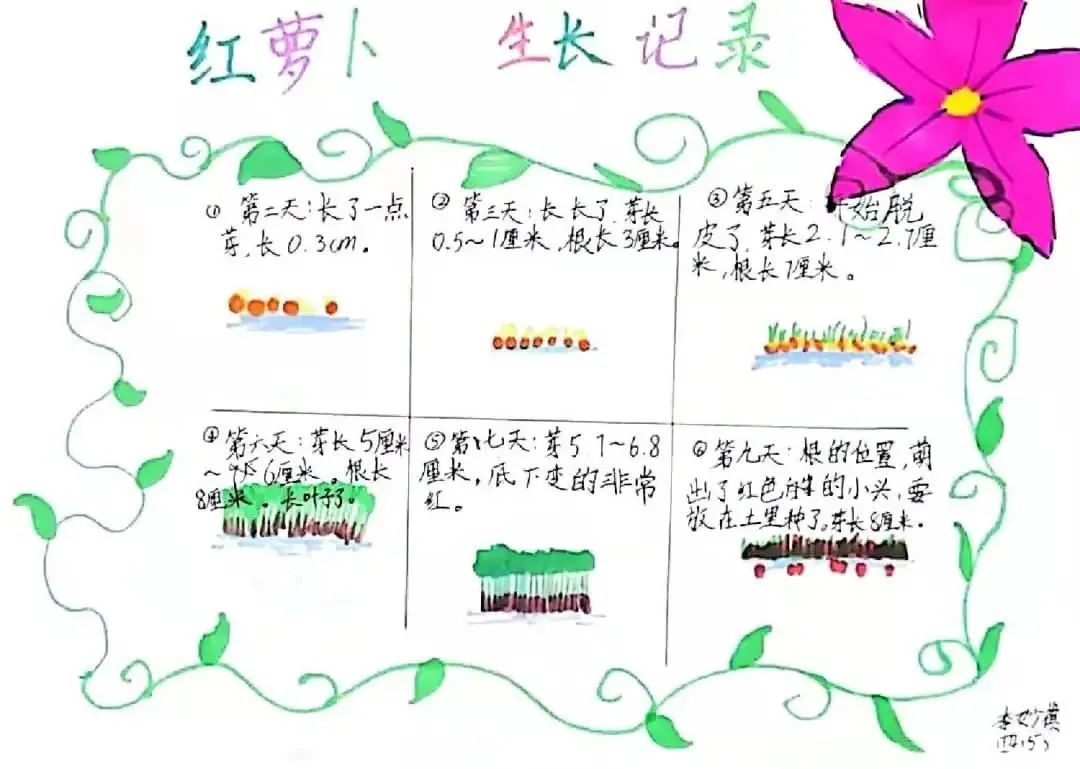 红萝卜 生长记录
① 第二天:长了一点
芽,长0.3cm。
② 第三天:长长了,芽长
0.5~1厘米,根长3厘米。
③ 第五天:开始脱
皮了,芽长2.1~2.7厘
米,根长7厘米。
④ 第六天:芽长5厘米
~6厘米。根长
8厘米。长叶子了。
⑤ 第七天:芽5.7~6.8
厘米,底下变的非常
红。
⑥ 第九天:根的位置,萌
出了红色的小头,要
放在土里种了。芽长8厘米。
李妙
四(5)